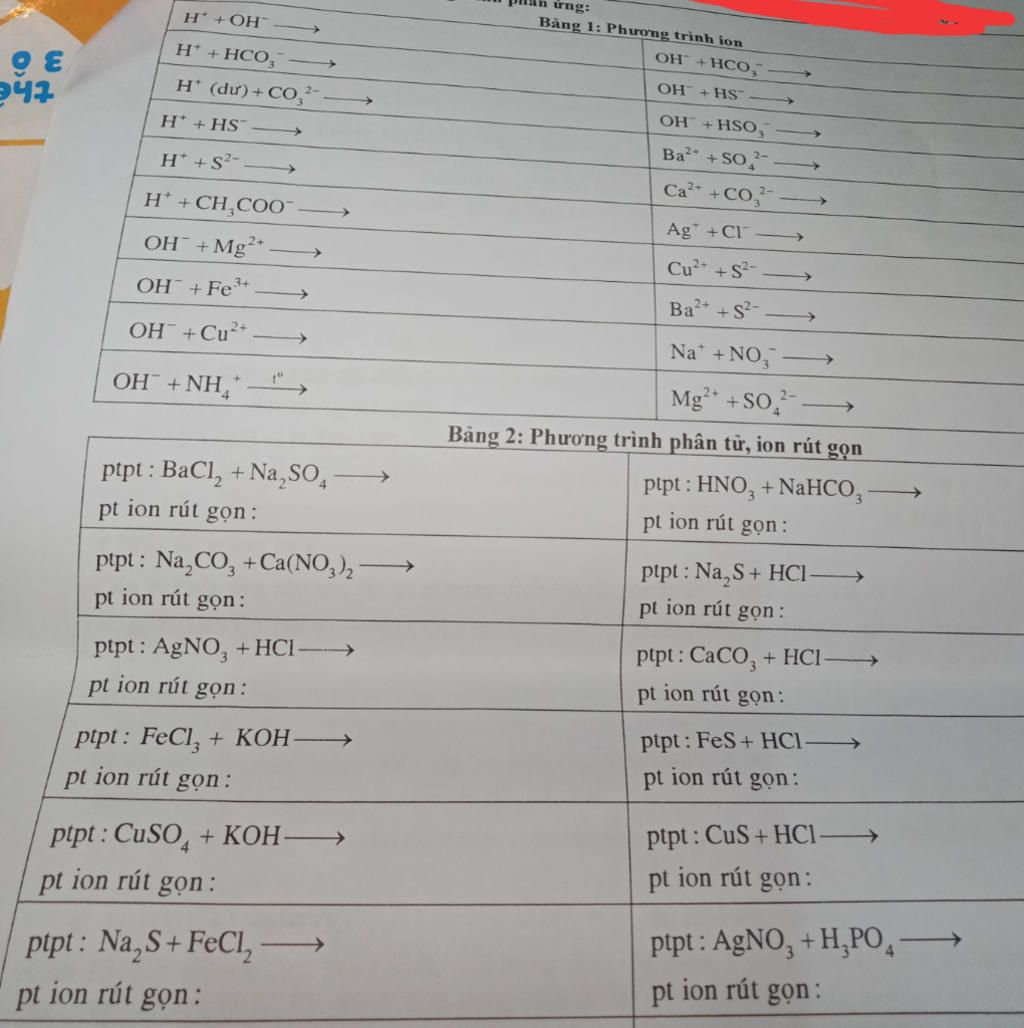 phản ứng:
Bảng 1: Phương trình ion
H⁺ + OH⁻ ⟶
OH⁻ + HCO₃⁻ ⟶
H⁺ + HCO₃⁻ ⟶
OH⁻ + HS⁻ ⟶
H⁺ (dư) + CO₃²⁻ ⟶
OH⁻ + HSO₃⁻ ⟶
H⁺ + HS⁻ ⟶
Ba²⁺ + SO₄²⁻ ⟶
H⁺ + S²⁻ ⟶
Ca²⁺ + CO₃²⁻ ⟶
H⁺ + CH₃COO⁻ ⟶
Ag⁺ + Cl⁻ ⟶
OH⁻ + Mg²⁺ ⟶
Cu²⁺ + S²⁻ ⟶
OH⁻ + Fe³⁺ ⟶
Ba²⁺ + S²⁻ ⟶
OH⁻ + Cu²⁺ ⟶
Na⁺ + NO₃⁻ ⟶
OH⁻ + NH₄⁺ —t°⟶
Mg²⁺ + SO₄²⁻ ⟶
Bảng 2: Phương trình phân tử, ion rút gọn
ptpt : BaCl₂ + Na₂SO₄ ⟶
pt ion rút gọn :
ptpt : HNO₃ + NaHCO₃ ⟶
pt ion rút gọn :
ptpt : Na₂CO₃ + Ca(NO₃)₂ ⟶
pt ion rút gọn :
ptpt : Na₂S + HCl ⟶
pt ion rút gọn :
ptpt : AgNO₃ + HCl ⟶
pt ion rút gọn :
ptpt : CaCO₃ + HCl ⟶
pt ion rút gọn :
ptpt : FeCl₃ + KOH ⟶
pt ion rút gọn :
ptpt : FeS + HCl ⟶
pt ion rút gọn :
ptpt : CuSO₄ + KOH ⟶
pt ion rút gọn :
ptpt : CuS + HCl ⟶
pt ion rút gọn :
ptpt : Na₂S + FeCl₂ ⟶
pt ion rút gọn :
ptpt : AgNO₃ + H₃PO₄ ⟶
pt ion rút gọn :